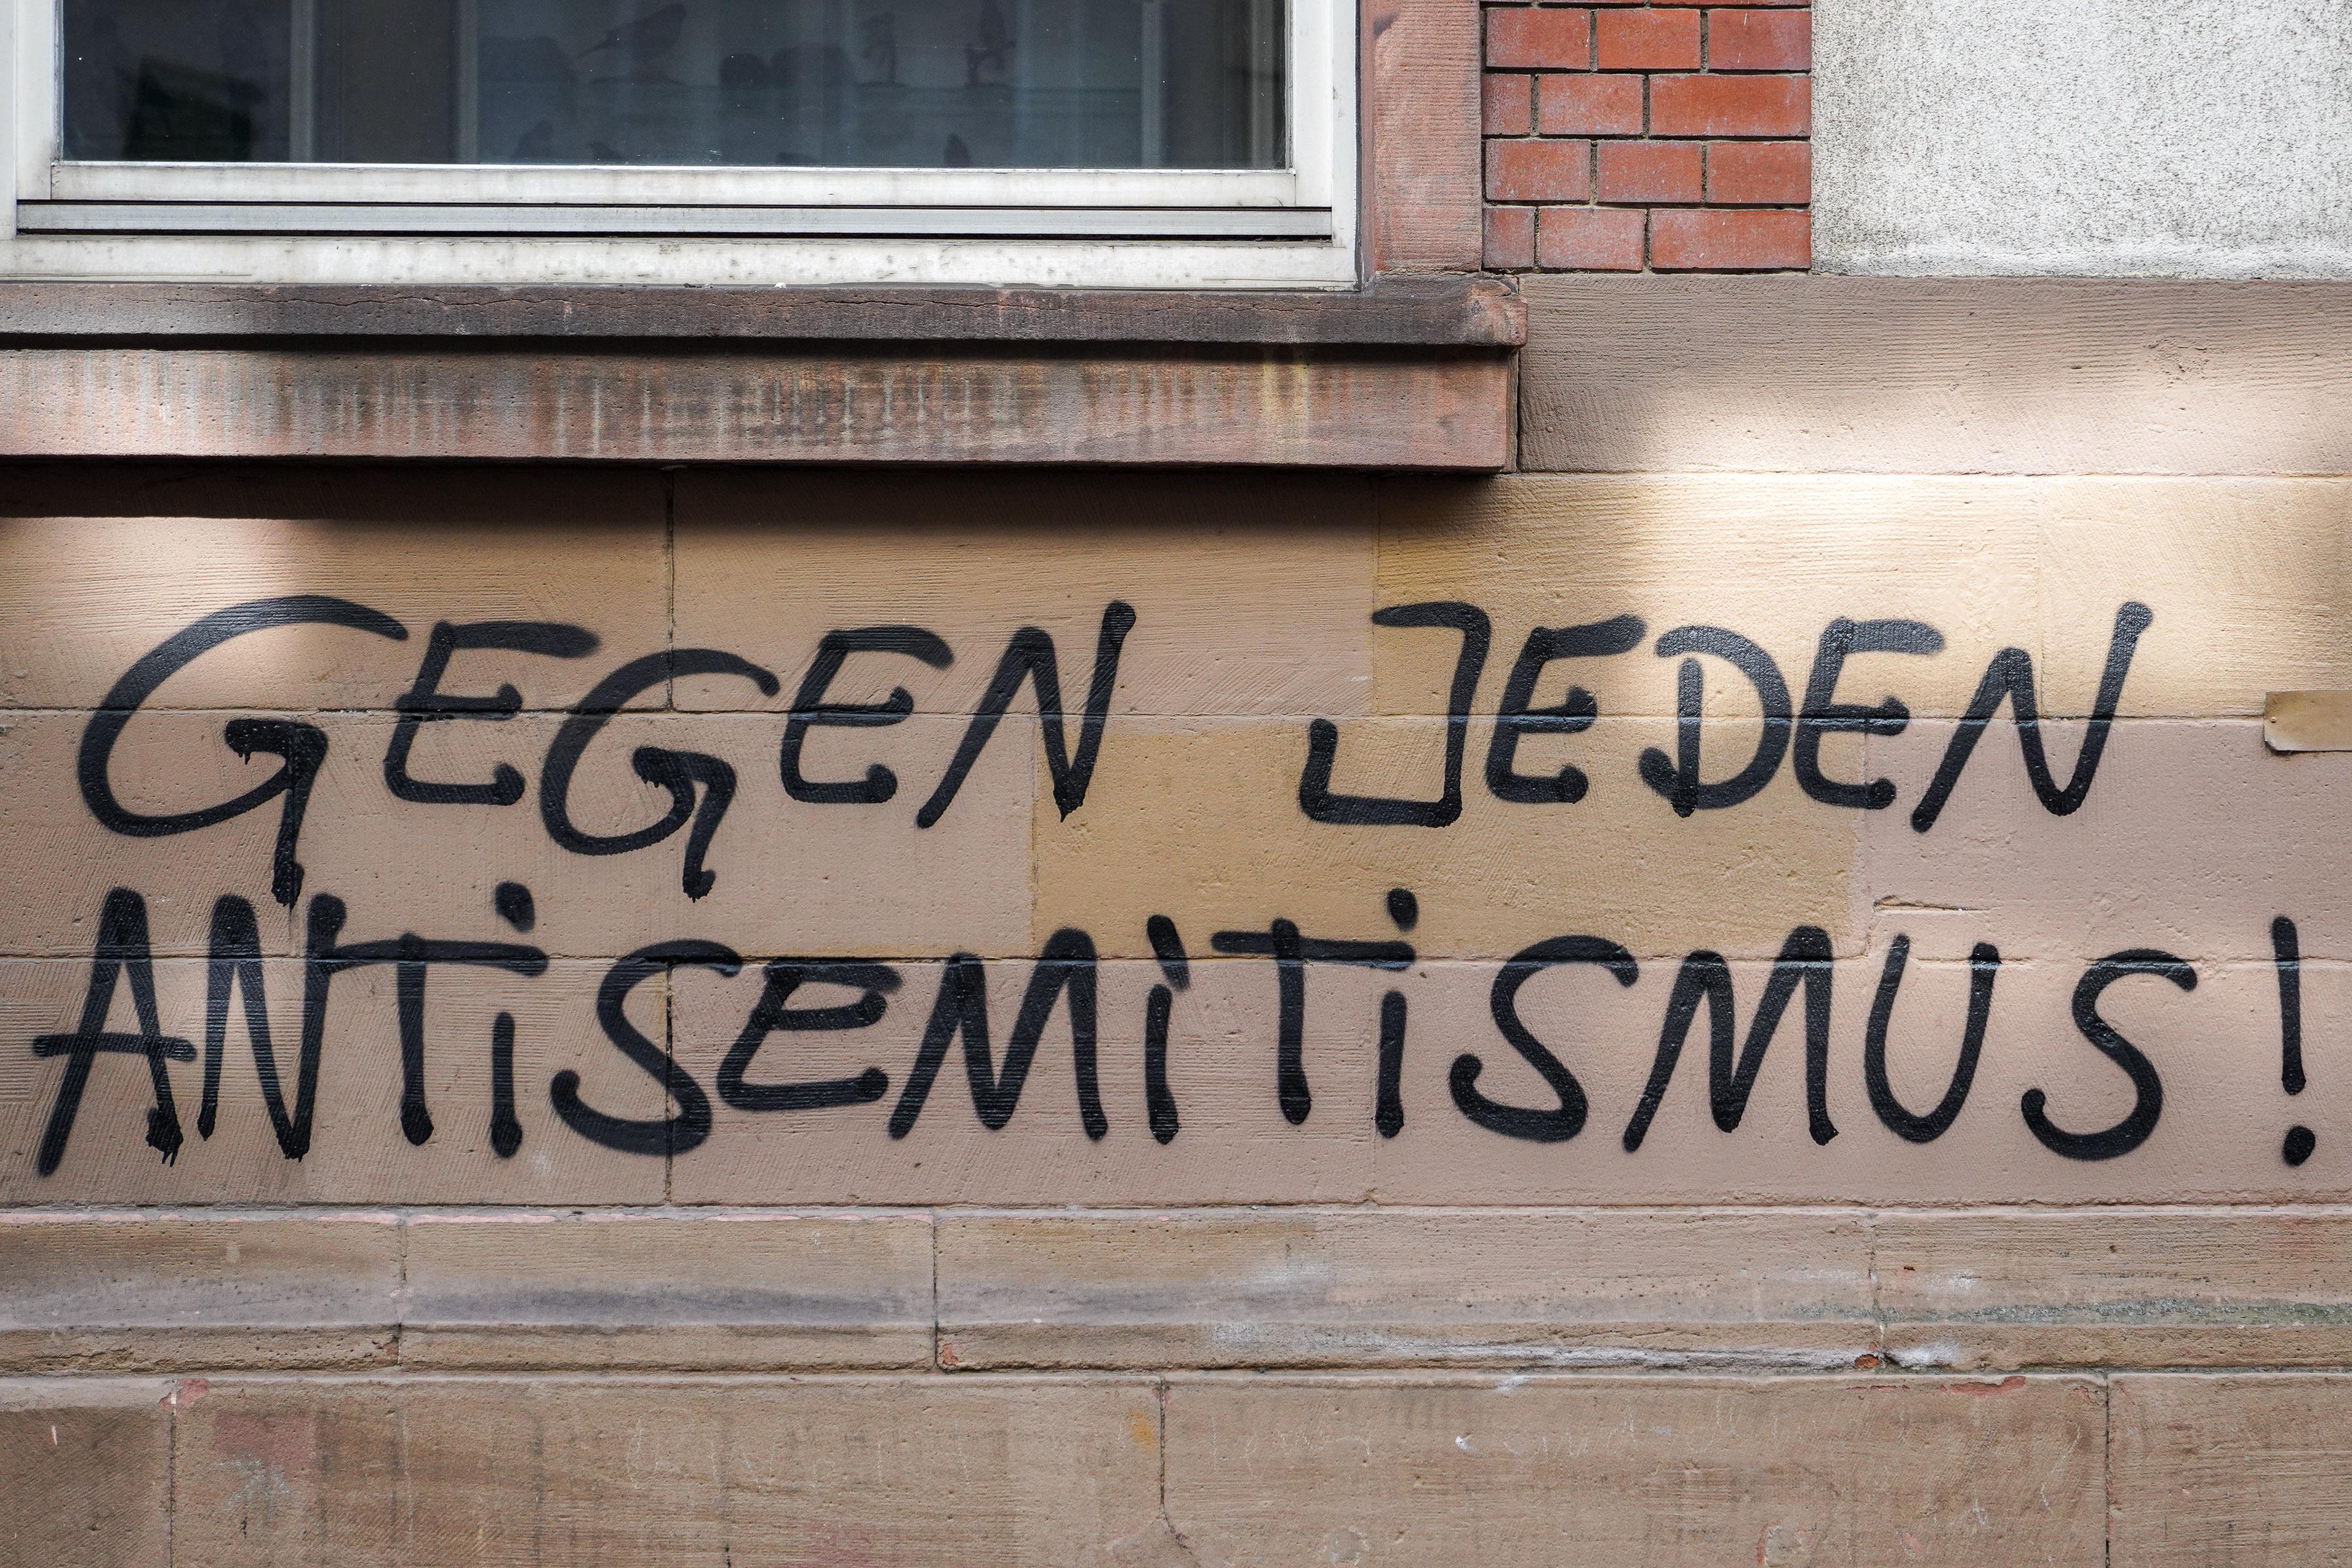 GEGEN JEDEN
ANTiSEMiTiSMUS!